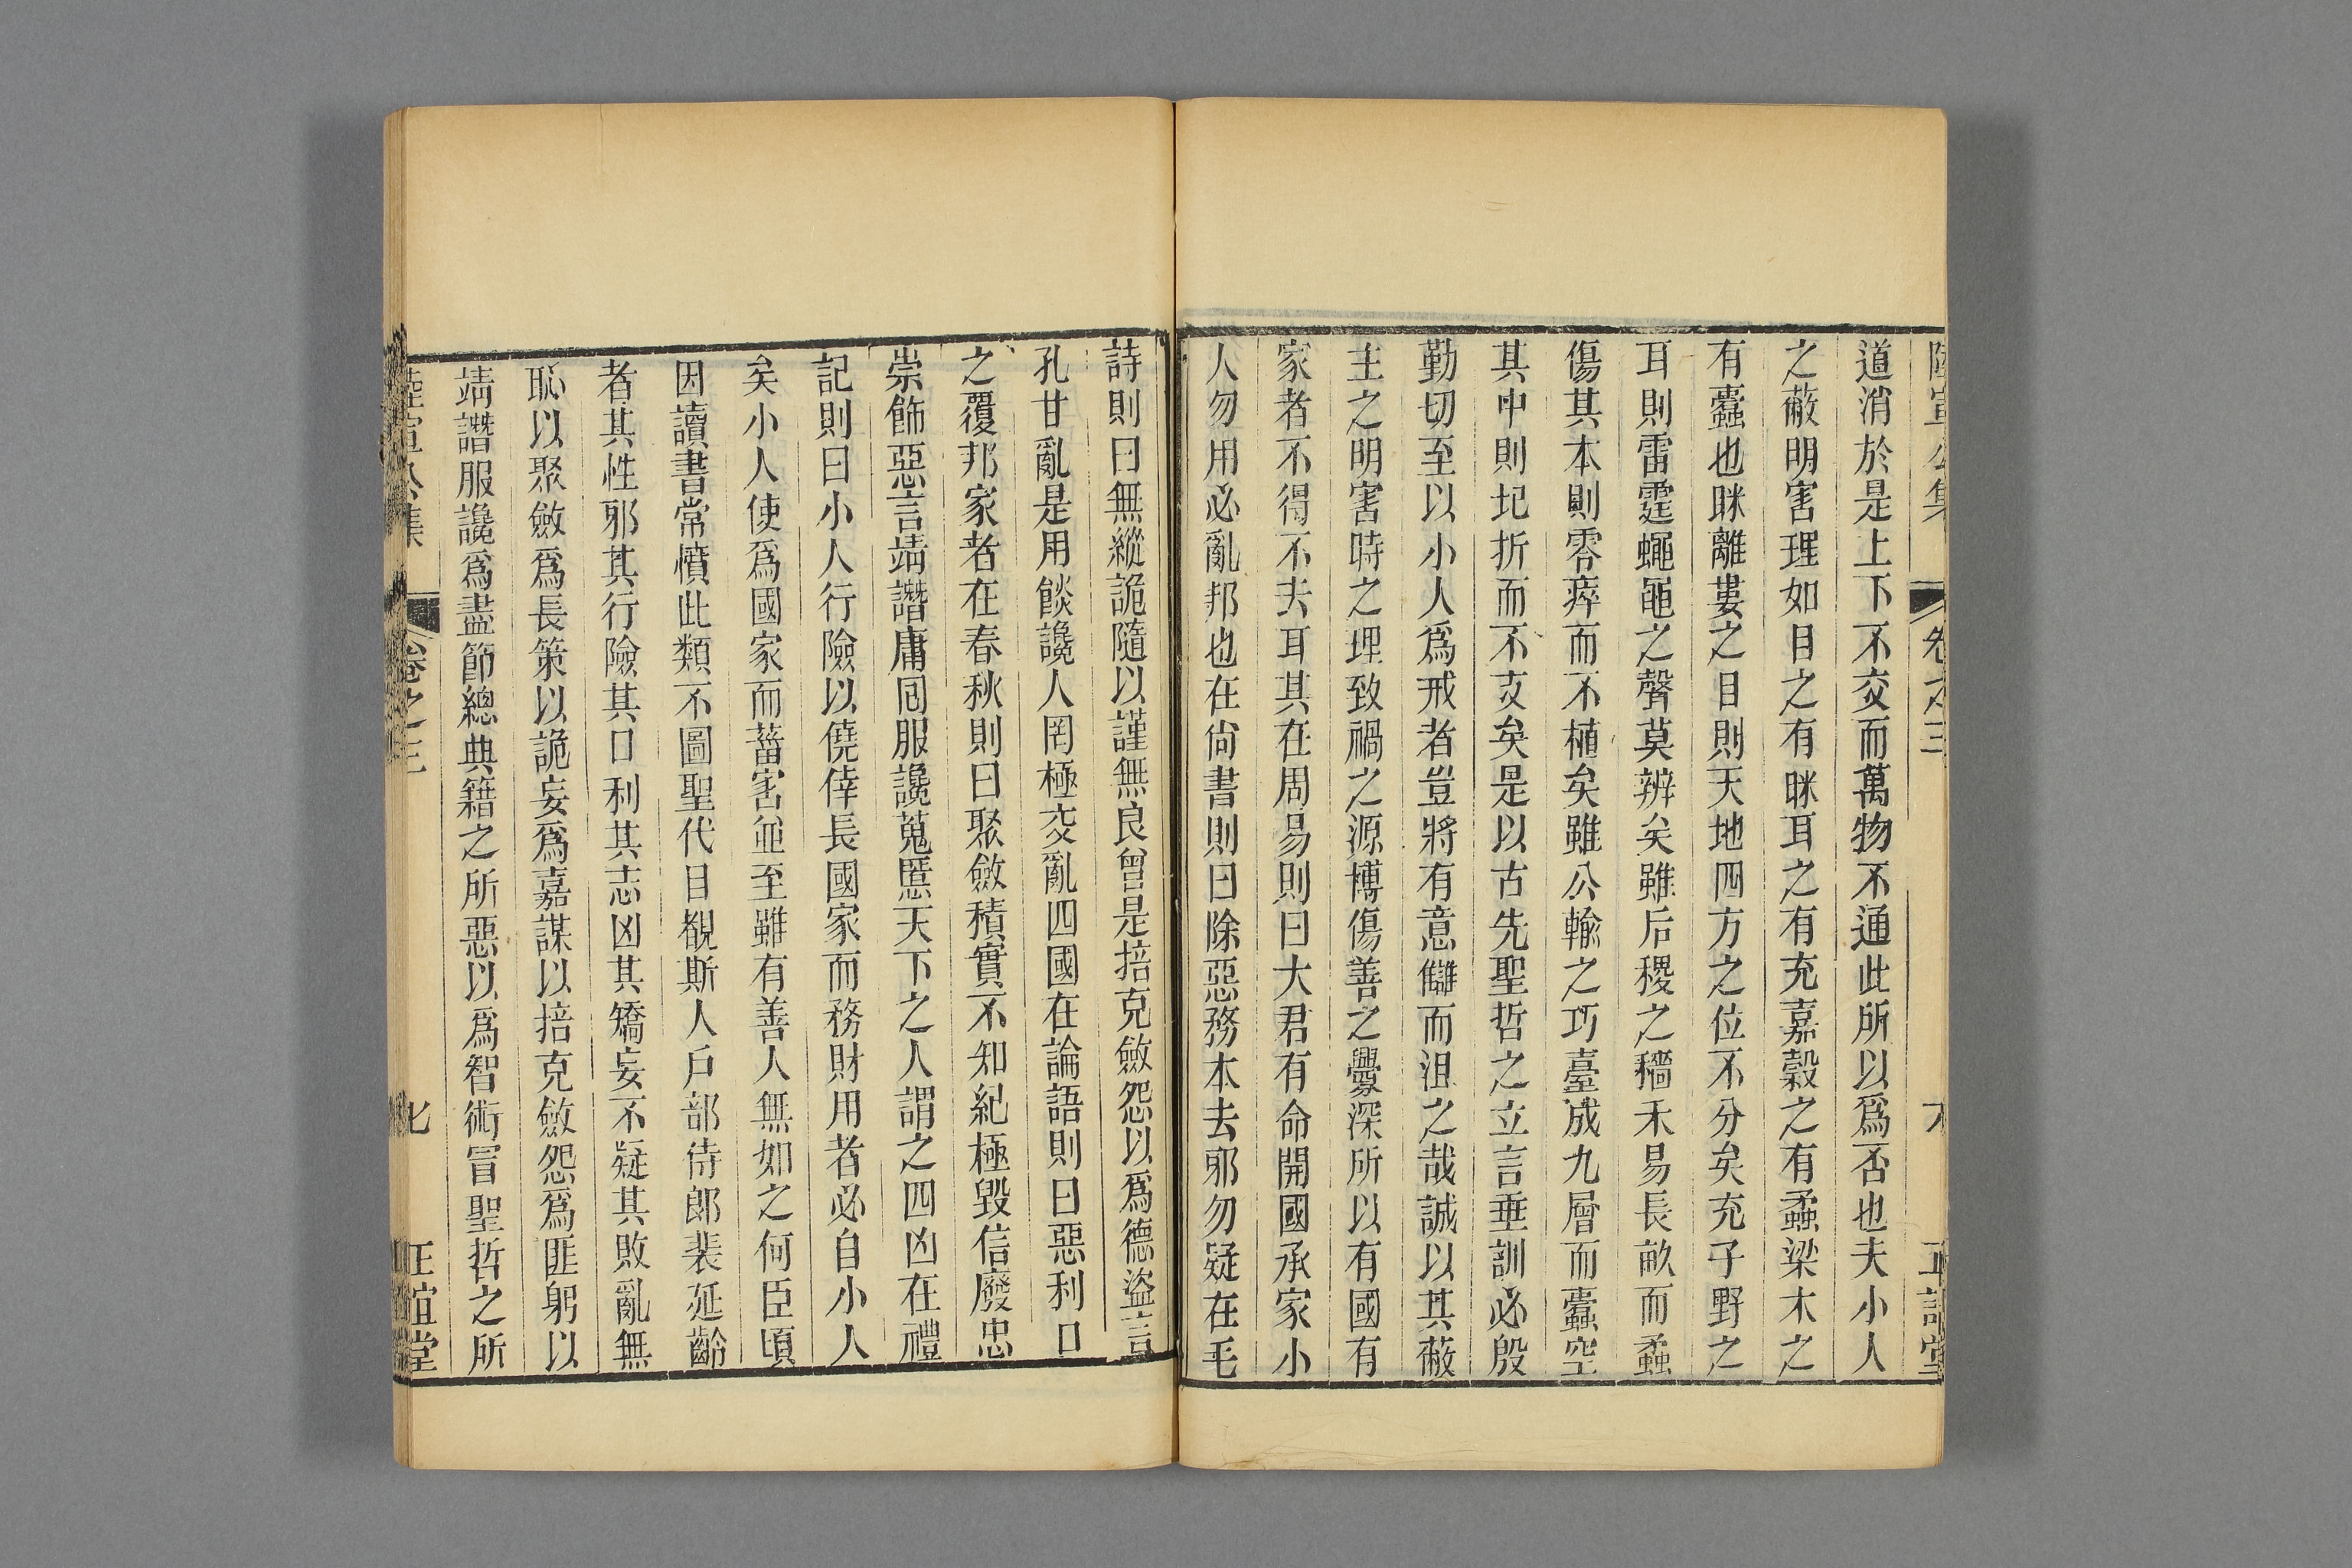 陸宣公集 卷之三 六 正誼堂
道消於是上下不交而萬物不通此所以爲否也夫小人
之蔽明害理如目之有眯耳之有充嘉穀之有蟊梁木之
有蠹也眯離婁之目則天地四方之位不分矣充子野之
耳則雷霆蠅黽之聲莫辨矣雖后稷之穡禾易長畝而蟊
傷其本則零瘁而不植矣雖公輸之巧臺成九層而蠹空
其中則圮折而不支矣是以古先聖哲之立言垂訓必殷
勤切至以小人爲戒者豈將有意讎而沮之哉誠以其蔽
主之明害時之理致禍之源博傷善之釁深所以有國有
家者不得不去耳其在周易則曰大君有命開國承家小
人勿用必亂邦也在尙書則曰除惡務本去邪勿疑在毛
詩則曰無縱詭隨以謹無良曾是掊克斂怨以爲德盜言
孔甘亂是用餤讒人罔極交亂四國在論語則曰惡利口
之覆邦家者在春秋則曰聚斂積實不知紀極毀信廢忠
崇飾惡言靖譖庸囘服讒蒐慝天下之人謂之四凶在禮
記則曰小人行險以僥倖長國家而務財用者必自小人
矣小人使爲國家而菑害並至雖有善人無如之何臣頃
因讀書常憤此類不圖聖代目覩斯人戶部侍郎裴延齡
者其性邪其行險其口利其志凶其矯妄不疑其敗亂無
恥以聚斂爲長策以詭妄爲嘉謀以掊克斂怨爲匪躬以
靖譖服讒爲盡節總典籍之所惡以爲智術冒聖哲之所
陸宣公集 卷之三 七 正誼堂